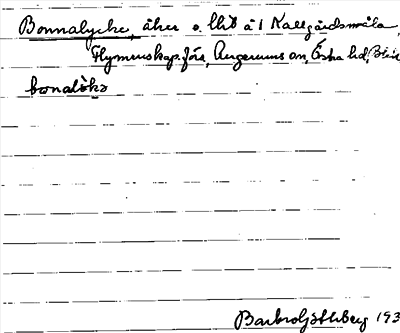 Bonnalycke, åker o. lid å 1 Kallgårdsmåla,
Flymenskap. förs, Augerums sn, Östra hd, Blek
bonalöka
Barbro Göthberg 193